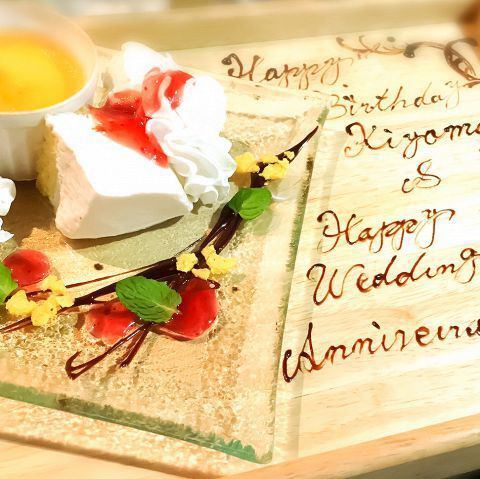 Happy
Birthday
Kiyom
&
Happy
Wedding
Annivers